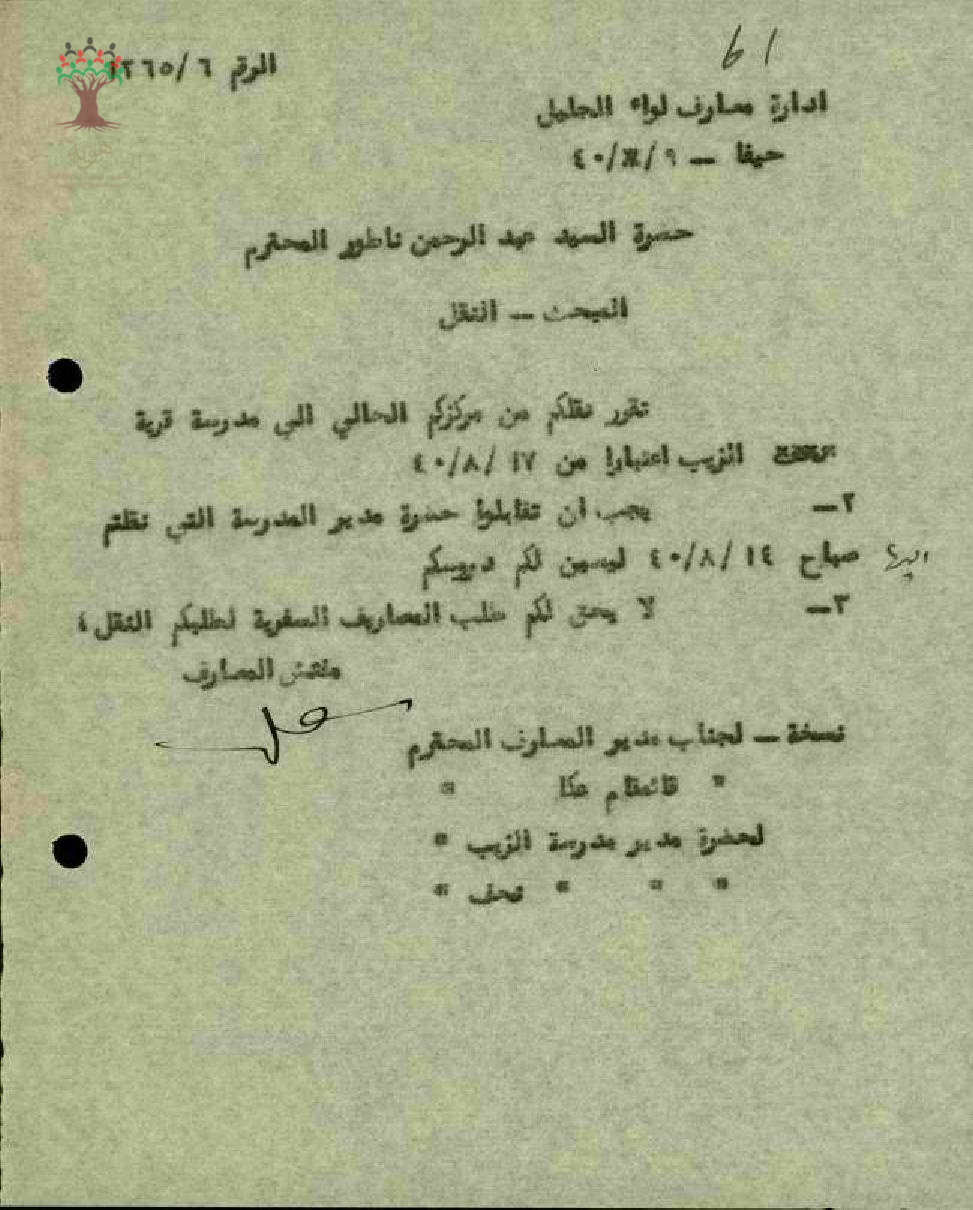 61
الرقم ٦/١٢٦٥
ادارة معارف لواء الجليل
حيفا – ٩/٨/٤٠
حضرة السيد عبد الرحمن ناطور المحترم
المبحث – النقل
تقرر نقلكم من مركزكم الحالي الى مدرسة قرية
الزيب اعتبارا من ١٧/٨/٤٠
٢– يجب ان تقابلوا حضرة مدير المدرسة التي نقلتم اليها
صباح ١٤/٨/٤٠ ليعين لكم دروسكم
٣– لا يحق لكم طلب المصاريف السفرية لطلبكم النقل ،
مفتش المعارف
نسخة – لجناب مدير المعارف المحترم
" قائمقام عكا "
لحضرة مدير مدرسة الزيب "
" " " نحف "